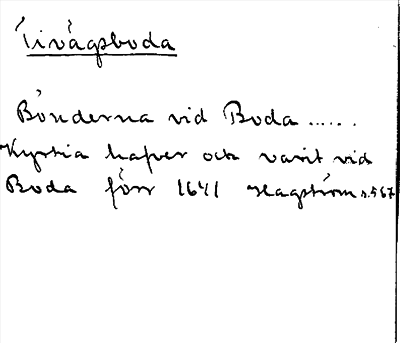 Tivågsboda
Bönderna vid Boda ......
Kyrkia hafver och varit vid
Boda förr 1641 Hagström s. 567